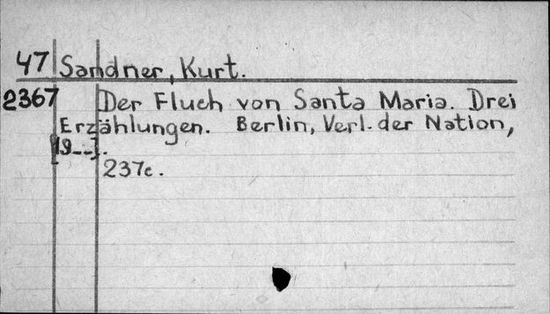 47 Sandner, Kurt.
2367 Der Fluch von Santa Maria. Drei
Erzählungen. Berlin, Verl. der Nation,
[19--].
237c.